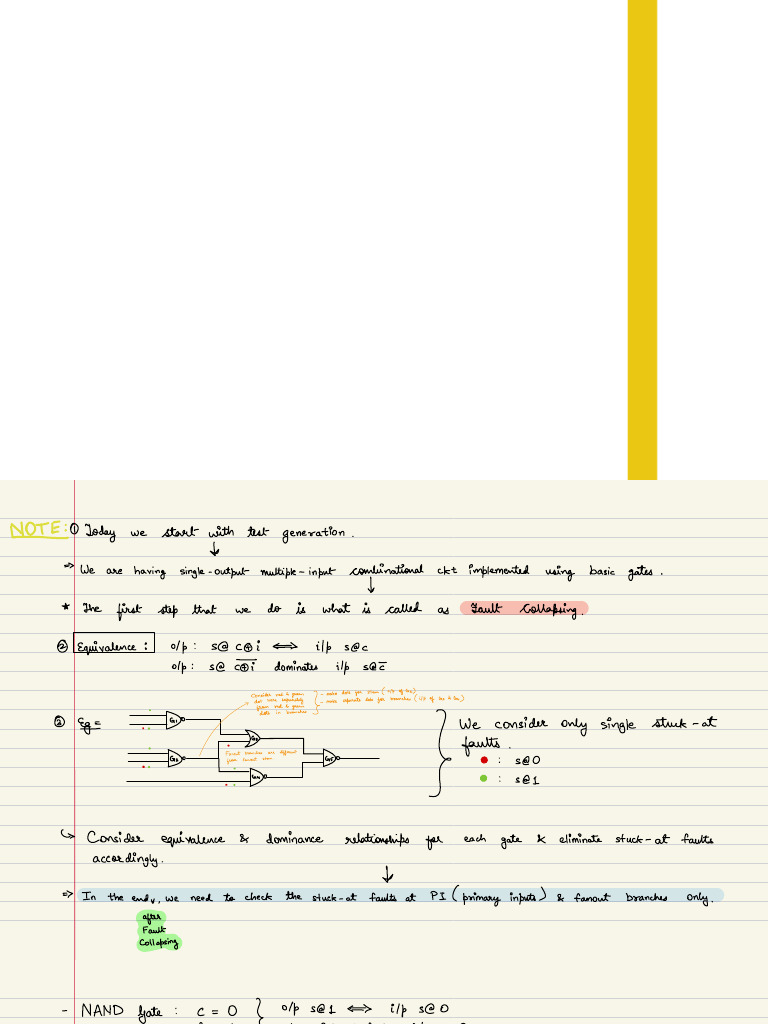 NOTE: ① Today we start with test generation.
⇒ We are having single-output multiple-input combinational ckt implemented using basic gates.
* The first step that we do is what is called as Fault Collapsing.
② Equivalence : o/p : s@ c⊕i ⟺ i/p s@c
o/p : s@ \overline{c⊕i} dominates i/p s@\overline{c}
Consider red & green
dot here separately
from red & green
dots in branches
- make dots for stem (o/p of G2)
- make separate dots for branches (i/p of G3 & G4)
③ Eg =
G1
G2
G3
G4
G5
Fanout branches are different
from fanout stem
We consider only single stuck-at
faults.
: s@0
: s@1
↳ Consider equivalence & dominance relationships for each gate & eliminate stuck-at faults
accordingly.
⇒ In the end, we need to check the stuck-at faults at PI (primary inputs) & fanout branches only.
after
Fault
Collapsing
- NAND Gate : c = 0 } o/p s@1 ⟺ i/p s@0